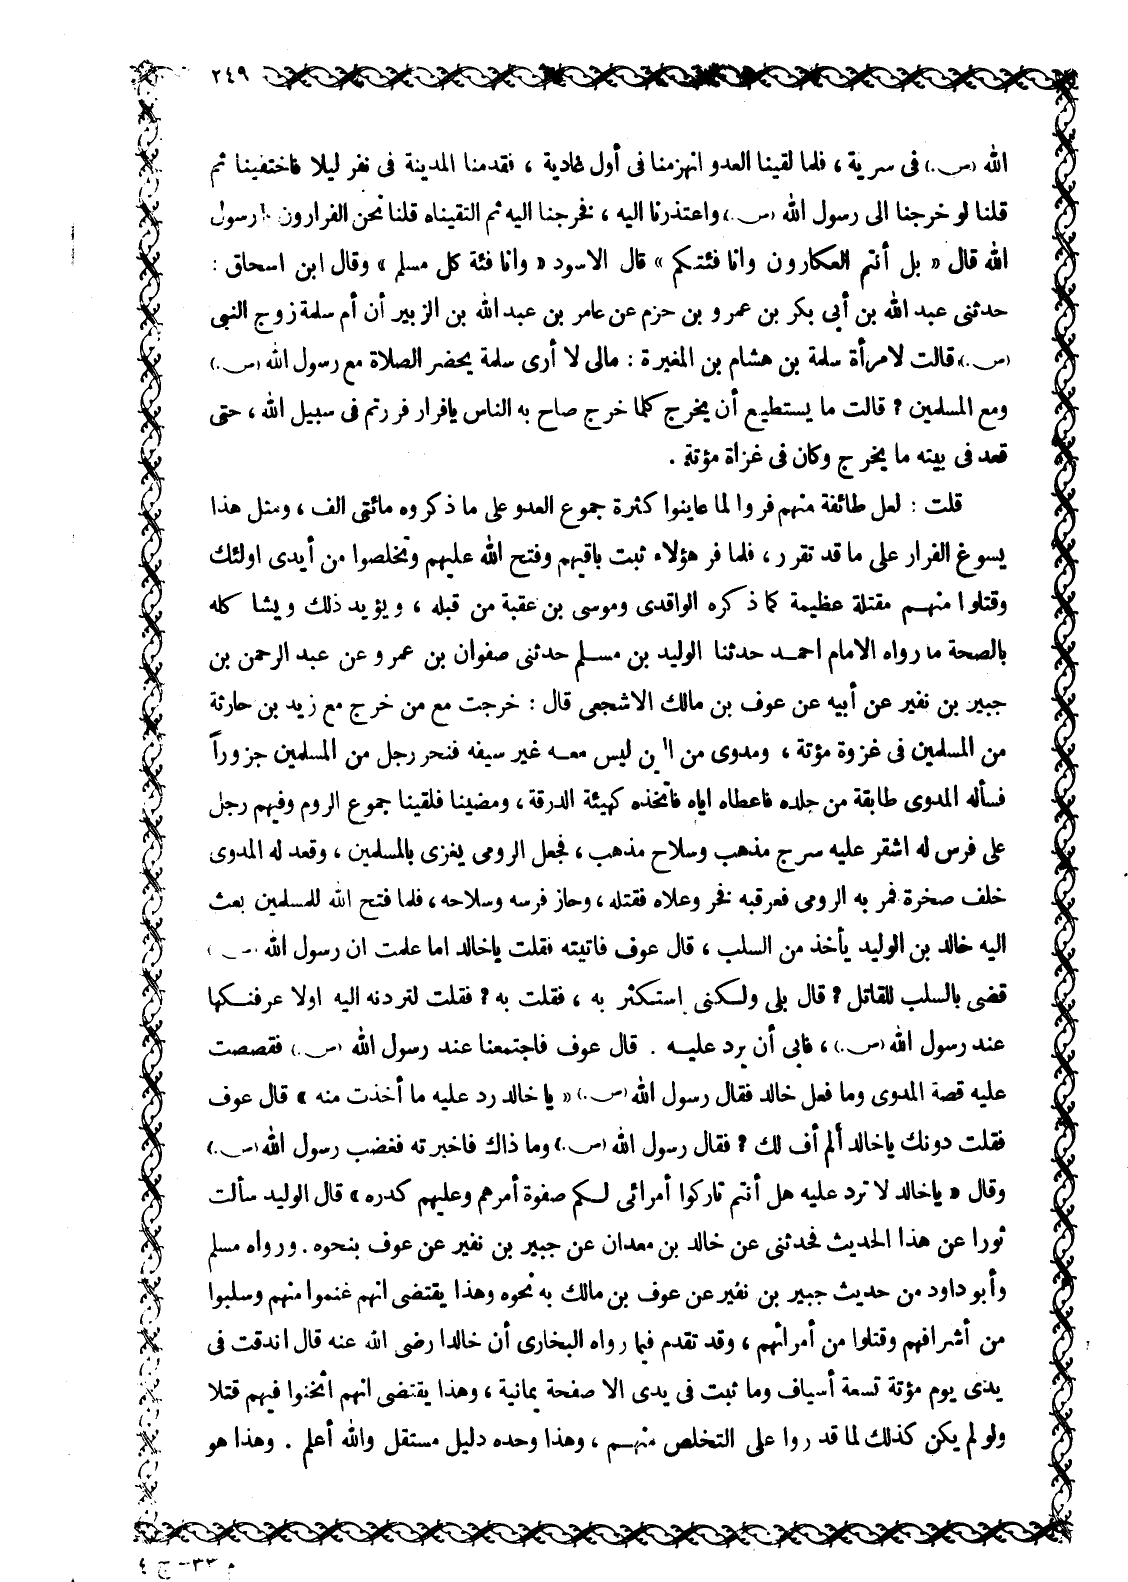 ٢٤٩
الله (ص.) فى سرية ، فلما لقينا العدو انهزمنا فى أول غادية ، فقدمنا المدينة فى نفر ليلا فاختفينا ثم
قلنا لو خرجنا الى رسول الله (ص.) واعتذرنا اليه ، فخرجنا اليه ثم التقيناه قلنا نحن الفرارون يا رسول
الله قال « بل أنتم العكارون وانا فئتكم » قال الاسود « وانا فئة كل مسلم » وقال ابن اسحاق :
حدثنى عبد الله بن أبى بكر بن عمرو بن حزم عن عامر بن عبد الله بن الزبير أن أم سلمة زوج النبى
(ص.) قالت لامرأة سلمة بن هشام بن المغيرة : مالى لا أرى سلمة يحضر الصلاة مع رسول الله (ص.)
ومع المسلمين ؟ قالت ما يستطيع أن يخرج كلما خرج صاح به الناس يافرار فررتم فى سبيل الله ، حتى
قعد فى بيته ما يخرج وكان فى غزاة مؤتة .
قلت : لعل طائفة منهم فروا لما عاينوا كثرة جموع العدو على ما ذكروه مائتى الف ، ومثل هذا
يسوغ الفرار على ما قد تقرر ، فلما فر هؤلاء ثبت باقيهم وفتح الله عليهم وتخلصوا من أيدى اولئك
وقتلوا منهم مقتلة عظيمة كما ذكره الواقدى وموسى بن عقبة من قبله ، ويؤيد ذلك ويشاكله
بالصحة ما رواه الامام احمد حدثنا الوليد بن مسلم حدثنى صفوان بن عمرو عن عبد الرحمن بن
جبير بن نفير عن أبيه عن عوف بن مالك الاشجعى قال : خرجت مع من خرج مع زيد بن حارثة
من المسلمين فى غزوة مؤتة ، ومدوى من اليمن ليس معه غير سيفه فنحر رجل من المسلمين جزوراً
فسأله المدوى طابقة من جلده فاعطاه اياه فاتخذه كهيئة الدرقة ، ومضينا فلقينا جموع الروم وفيهم رجل
على فرس له اشقر عليه سرج مذهب وسلاح مذهب ، فجعل الرومى يغزى بالمسلمين ، وقعد له المدوى
خلف صخرة فمر به الرومى فعرقبه فخر وعلاه فقتله ، وحاز فرسه وسلاحه ، فلما فتح الله للمسلمين بعث
اليه خالد بن الوليد يأخذ من السلب ، قال عوف فاتيته فقلت ياخالد اما علمت ان رسول الله (ص.)
قضى بالسلب للقاتل ؟ قال بلى ولكنى استكثر به ، فقلت به ؟ فقلت لتردنه اليه اولا عرفنكها
عند رسول الله (ص.) ، فابى أن يرد عليه . قال عوف فاجتمعنا عند رسول الله (ص.) فقصصت
عليه قصة المدوى وما فعل خالد فقال رسول الله (ص.) « يا خالد رد عليه ما أخذت منه » قال عوف
فقلت دونك ياخالد ألم أف لك ؟ فقال رسول الله (ص.) وما ذاك فاخبرته فغضب رسول الله (ص.)
وقال « ياخالد لا ترد عليه هل أنتم تاركوا أمرائى لكم صفوة أمرهم وعليهم كدره » قال الوليد سألت
ثورا عن هذا الحديث فحدثنى عن خالد بن معدان عن جبير بن نفير عن عوف بنحوه . ورواه مسلم
وأبو داود من حديث جبير بن نفير عن عوف بن مالك به نحوه وهذا يقتضى انهم غنموا منهم وسلبوا
من أشرافهم وقتلوا من أمرائهم ، وقد تقدم فيما رواه البخارى أن خالدا رضى الله عنه قال اندقت فى
يدى يوم مؤتة تسعة أسياف وما ثبت فى يدى الا صفحة يمانية ، وهذا يقتضى انهم أثخنوا فيهم قتلا
ولو لم يكن كذلك لما قدروا على التخلص منهم ، وهذا وحده دليل مستقل والله أعلم . وهذا هو
م ٣٣ - ج ٤